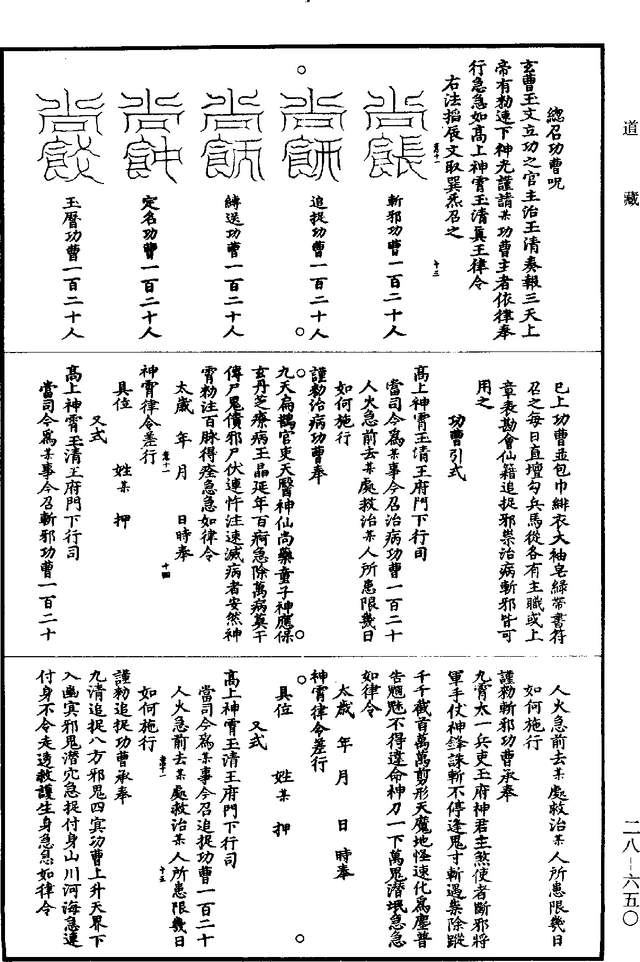 道藏
總召功曹呪
玄曹玉文立功之官主治玉清奏報三天上
帝有勑速下神光謹請某功曹主者依律奉
行急急如高上神霄玉清真王律令
右法掐辰文取巽炁召之
斬邪功曹一百二十人
追捉功曹一百二十人
縛送功曹一百二十人
定名功曹一百二十人
玉曆功曹一百二十人
已上功曹並包巾緋衣大袖皂綠帶書符
召之每日直壇勾兵馬從各有主職或上
章表勘會仙籍追捉邪祟治病斬邪皆可
用之
功曹引式
高上神霄玉清王府門下行司
當司今為某事今召治病功曹一百二十
人火急前去某處救治某人所患限幾日
如何施行
謹勑治病功曹奉
九天扁鵲官吏天醫神仙尚藥童子神應保
玄丹芝療病玉晶延年百痾急除萬病莫干
傳尸鬼債邪尸伏連忤注速滅病者安然神
霄勑注百脉得痊急急如律令
太歲年月日時奉
神霄律令差行
具位姓某押
又式
高上神霄玉清王府門下行司
當司今為某事今召斬邪功曹一百二十
人火急前去某處救治某人所患限幾日
如何施行
謹勑斬邪功曹承奉
九霄太一兵吏玉府神君主煞使者斷邪將
軍手仗神鋒誅斬不停逢鬼寸斬遇祟除蹤
千千截首萬萬剪形天魔地怪速化為塵普
告魍魎不得違命神刀一下萬鬼潛珉急急
如律令
太歲年月日時奉
神霄律令差行
具位姓某押
又式
高上神霄玉清王府門下行司
當司今為某事今召追捉功曹一百二十
人火急前去某處救治某人所患限幾日
如何施行
謹勑追捉功曹承奉
九清追捉八方邪鬼四冥功曹上升天界下
入幽冥邪鬼潛穴急捉付身山川河海急速
付身不令走透救護生身急急如律令
二八－六五〇